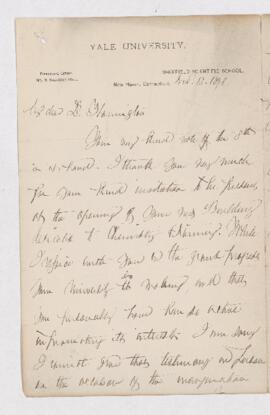 YALE UNIVERSITY.
SHEFFIELD SCIENTIFIC SCHOOL.
New Haven, Connecticut,
My dear Dr.
Your very kind note of the 8th
is at hand. I thank you very much
for your kind invitation to be present
at the opening of your new Building
devoted to Chemistry. While
I rejoice with you in the grand progress
your University is making and that
you personally have been so active
in promoting its interests I am sorry
I cannot give that testimony in person
on the occasion of the inauguration